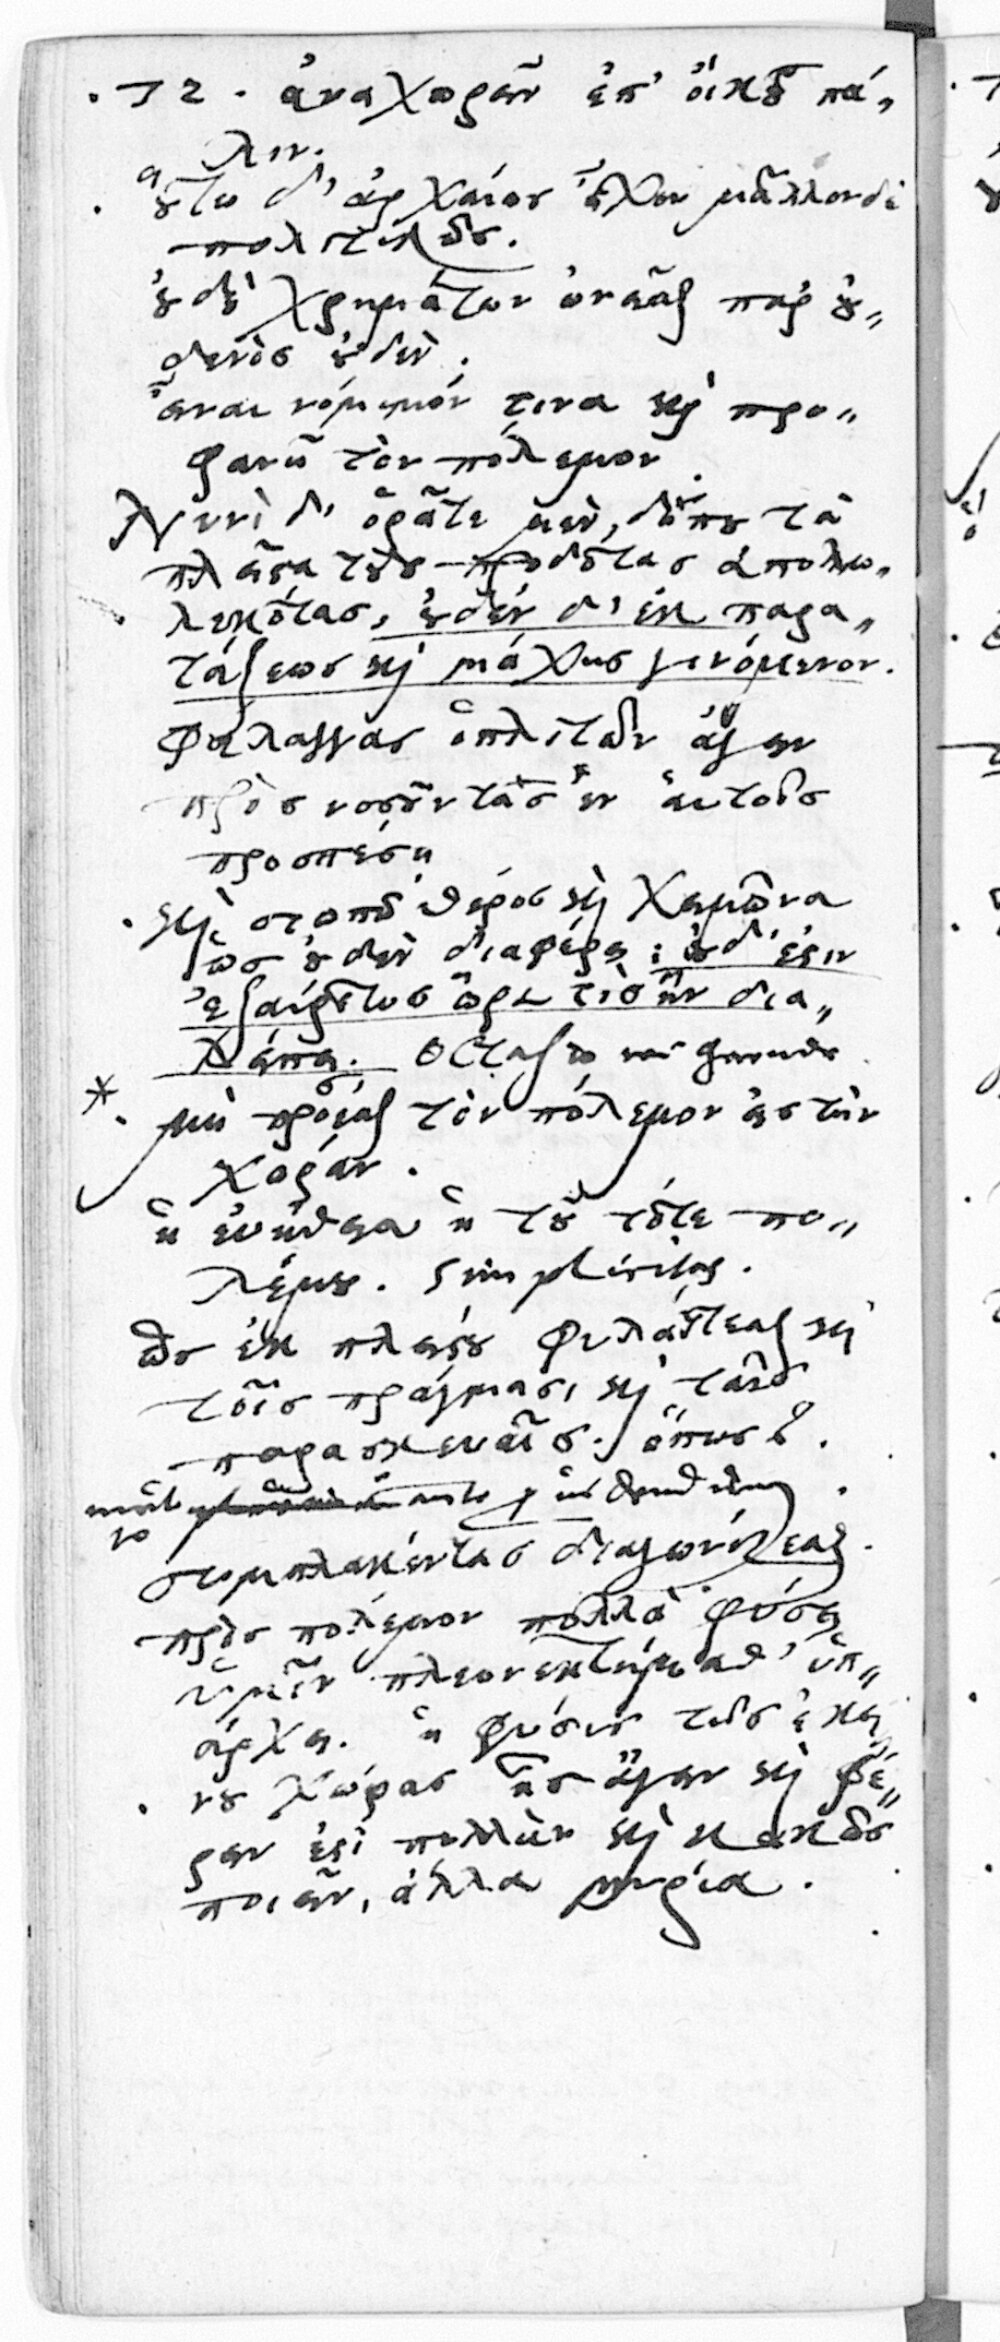 . 72 . ἀναχωρεῖν ἐπ' οἴκου πά„
λιν.
. οὕτω δ' ἀρχαίως εἶχον μᾶλλον δὲ
πολιτικῶς.
οὐδὲ χρημάτων ὠνεῖσθαι παρ' οὐ„
δενὸς οὐδέν.
εἶναι νόμιμόν τινα καὶ προ„
φανῆ τὸν πόλεμον
Νυνὶ δ' ὁρᾶτε μὲν, δήπου τὰ
πλεῖστα τοὺς προδότας ἀπολω„
λεκότας, οὐδὲν δ' ἐκ παρα„
τάξεως καὶ μάχης γινόμενον.
Φάλαγγας ὁπλιτῶν ἄγειν
πρὸς νοσοῦντας ἐν αὑτοῖς
προσπέσῃ
. καὶ σιωπῶ θέρος καὶ χειμῶνα
ὡς οὐδὲν διαφέρει : οὐδ' ἔστιν
ἐξαίρετος ὥρα τὶς ἣν δια„
λείπει.
* . μὴ προσέσθαι τὸν πόλεμον εἰς τὴν
χώραν .
ἡ εὐήθεια ἡ τοῦ τότε πο„
λέμου . Simplicitas .
ὡς ἐκ πλείστου φυλάττεσθαι καὶ
τοῖς πράγμασι καὶ ταῖς
παρασκευαῖς . ὅπως
συμπλακέντας διαγωνίζεσθαι .
πρὸς πόλεμον πολλὰ φύσει
ὑμῖν πλεονεκτήμαθ' ὑπ„
άρχει . ἡ φύσις τῆς ἐκεί
. νου χώρας ἧς ἄγειν καὶ φέ„
ρειν ἐστὶ πολλὴν καὶ κακῶς
ποιεῖν, ἄλλα μυρία .